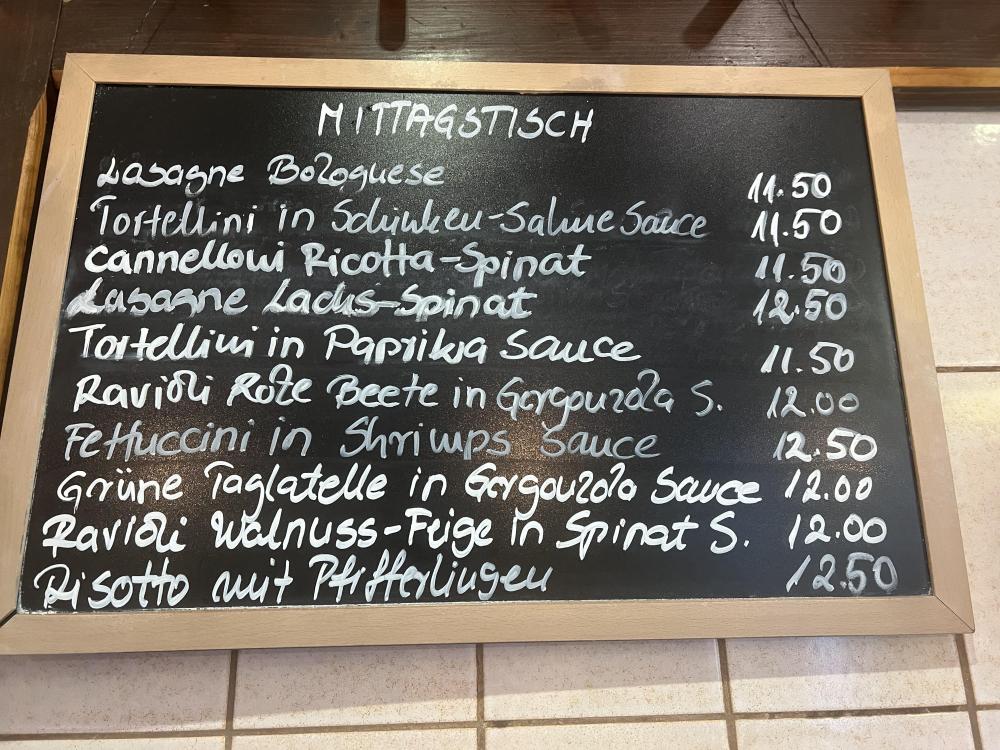 MITTAGSTISCH
Lasagne Bolognese 11.50
Tortellini in Schinken-Sahne Sauce 11.50
Cannelloni Ricotta-Spinat 11.50
Lasagne Lachs-Spinat 12.50
Tortellini in Paprika Sauce 11.50
Ravioli Rote Beete in Gorgonzola S. 12.00
Fettuccini in Shrimps Sauce 12.50
Grüne Taglatelle in Gorgonzola Sauce 12.00
Ravioli Walnuss-Feige in Spinat S. 12.00
Risotto mit Pfifferlingen 12.50